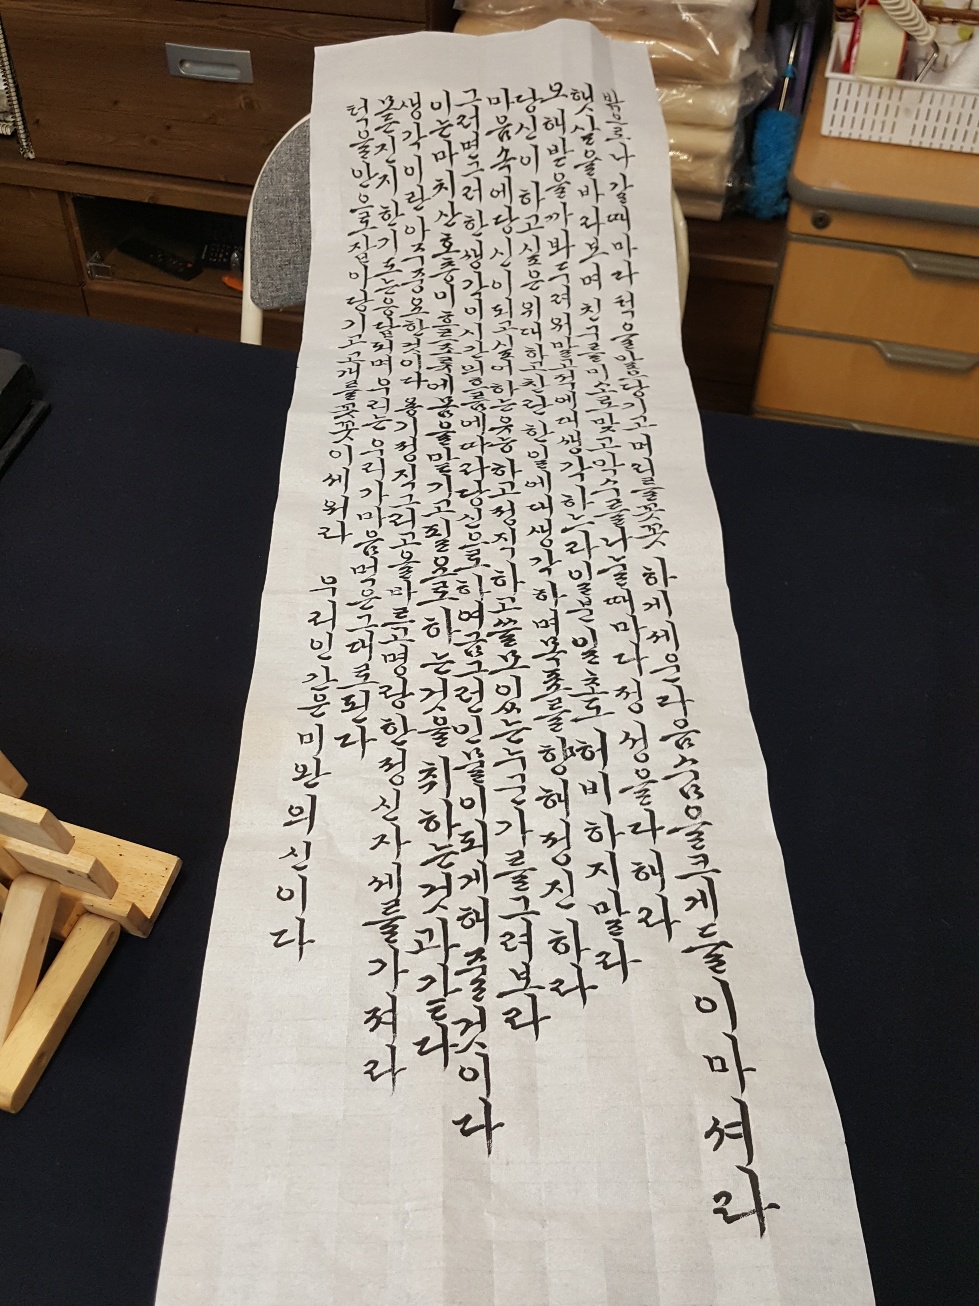 밖으로나갈때마다 턱을 당기고머리를꼿꼿 하게세우라음숨을크게들이마셔라
햇살을바라보며친구를미소로맞고악수를나눌때마다정성을다해라
오해받을까봐두려워말고적에대생각하느라일분일초도 허비하지말라
당신이하고싶은위대하고찬란한일에대생각하며목표를향해정진하라
마음속에당신이되고싶어하는유능하고정직하고쓸모있는누군가를그려보라
그러면그러한생각이시간의흐름에따라당신으로하여금그런인물이되게해줄것이다
이는마치산호충이흐르는조류에몸을맡기고필요로하는것을취하는것과같다
생각이란아주중요한것이다 용기정직그리고올바르고명랑한정신자세를가져라
모든진지한기도는응답되며우리는우리가마음먹은그대로된다
턱을안으로집어당기고고개를꼿꼿이세워라 우리인간은미완의신이다